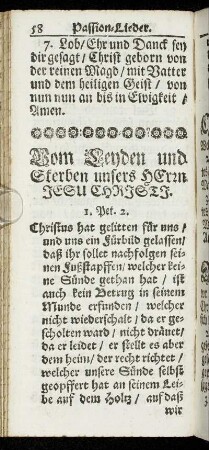 58 Passion-Lieder.
7. Lob/ Ehr und Danck sey
dir gesagt/ Christ geborn von
der reinen Magd/ mit Vatter
und dem heiligen Geist/ von
nun nun an bis in Ewigkeit/
Amen.
Vom Leyden und
Sterben unsers HErrn
JESU CHRISTJ.
1. Pet. 2.
Christus hat gelitten für uns/
und uns ein Fürbild gelassen/
daß ihr sollet nachfolgen sei-
nen Fußstapffen/ welcher kei-
ne Sünde gethan hat/ ist
auch kein Betrug in seinem
Munde erfunden/ welcher
nicht wiederschalt/ da er ge-
scholten ward/ nicht dräuet/
da er leidet/ er stellt es aber
dem heim/ der recht richtet/
welcher unsere Sünde selbst
geopffert hat an seinem Lei-
be auf dem Holtz/ auf daß
wir